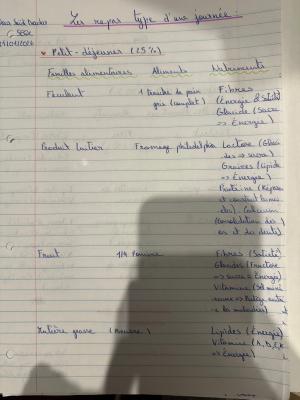 Les repas type d'une journée
SEGR
• Petit-déjeuner (25%)
Familles alimentaires Aliments Nutriments
Féculent 1 tranche de pain Fibres
gris (complet) (Energie & Satiété)
Glucide (Sucre
=> Energie)
Produit laitier Fromage philadelphia Lactose (Gluci
des => sucre)
Graisses (Lipide
=> Energie)
Protéine (Répare
et construit
Calcium
(consolidation des
os et les dents)
Fruit 1/4 Pomme Fibres (Satiété)
Glucides (Fructose
=> sucre => Energie)
Vitamine (Sel miné
raux => Protège
les maladies)
Matière grasse Lipides (Energie)
Vitamine (A, D, E, K
=> Energie)